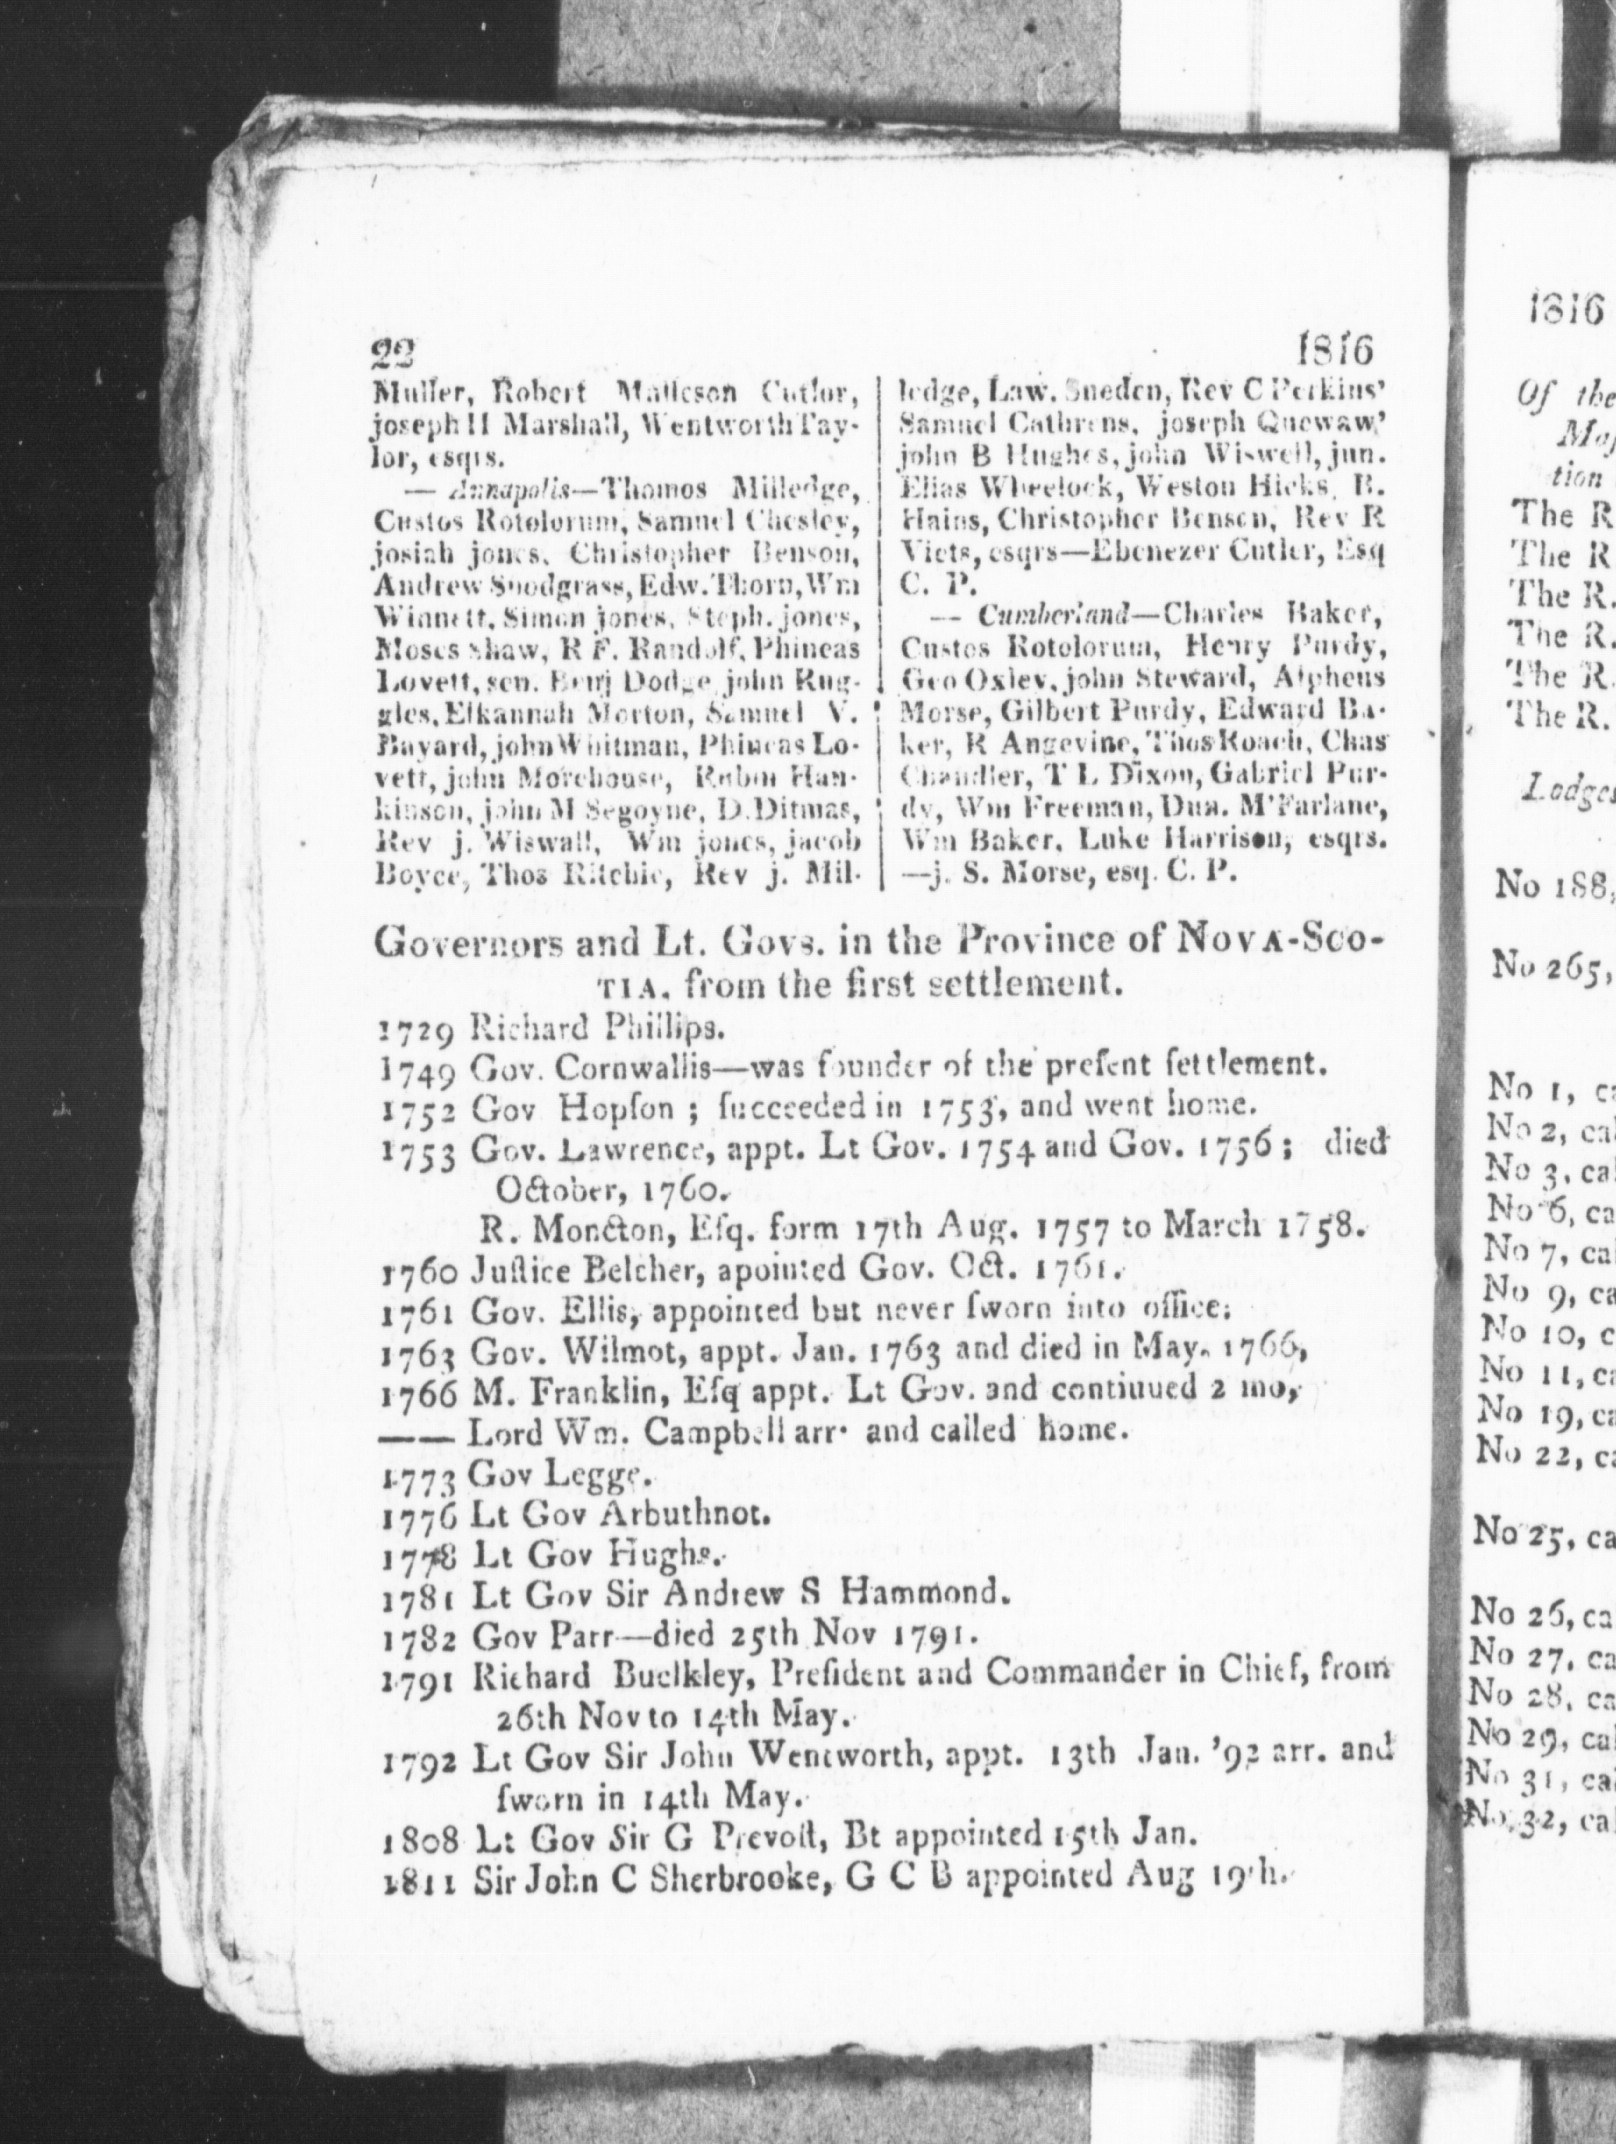 22 1816
Muller, Robert Matleson Cutlor,
joseph H Marshall, Wentworth Tay-
lor, esqrs.
— Annapolis—Thomos Milledge,
Custos Rotolorum, Samuel Chesley,
josiah jones, Christopher Benson,
Andrew Snodgrass, Edw. Thorn, Wm
Winnett, Simon jones, Steph. jones,
Moses Shaw, R F. Randolf, Phineas
Lovett, sen. Benj Dodge john Rug-
gles, Elkannah Morton, Samuel V.
Bayard, john Whitman, Phineas Lo-
vett, john Morehouse, Rubin Han-
kinson, john M Segoyne, D. Ditmas,
Rev j. Wiswall, Wm jones, jacob
Boyce, Thos Ritchie, Rev j. Mil-
ledge, Law. Sneden, Rev C Perkins'
Samuel Cathrens, joseph Quewaw,'
john B Hughes, john Wiswell, jun.
Elias Wheelock, Weston Hicks, B.
Hains, Christopher Benson, Rev R
Viets, esqrs—Ebenezer Cutler, Esq
C. P.
— Cumberland—Charles Baker,
Custos Rotolorum, Henry Purdy,
Geo Oxley, john Steward, Alpheus
Morse, Gilbert Purdy, Edward Ba-
ker, R Angevine, Thos Roach, Chas
Chandler, T L Dixon, Gabriel Pur-
dy, Wm Freeman, Dun. M'Farlane,
Wm Baker, Luke Harrison, esqrs.
—j. S. Morse, esq. C. P.
Governors and Lt. Govs. in the Province of NOVA-SCO-
TIA, from the first settlement.
1729 Richard Phillips.
1749 Gov. Cornwallis—was founder of the preſent ſettlement.
1752 Gov Hopſon ; ſucceeded in 1753, and went home.
1753 Gov. Lawrence, appt. Lt Gov. 1754 and Gov. 1756 ; died
October, 1760.
R. Moncton, Eſq. form 17th Aug. 1757 to March 1758.
1760 Juſtice Belcher, apointed Gov. Oct. 1761.
1761 Gov. Ellis, appointed but never ſworn into office.
1763 Gov. Wilmot, appt. Jan. 1763 and died in May. 1766,
1766 M. Franklin, Eſq appt. Lt Gov. and contiuued 2 mo,
—— Lord Wm. Campbell arr· and called home.
1773 Gov Legge.
1776 Lt Gov Arbuthnot.
1778 Lt Gov Hughs.
1781 Lt Gov Sir Andrew S Hammond.
1782 Gov Parr—died 25th Nov 1791.
1791 Richard Buelkley, Preſident and Commander in Chief, from
26th Nov to 14th May.
1792 Lt Gov Sir John Wentworth, appt. 13th Jan. '92 arr. and
ſworn in 14th May.
1808 Lt Gov Sir G Prevoſt, Bt appointed 15th Jan.
1811 Sir John C Sherbrooke, G C B appointed Aug 19th.
1816
Of the
tion
The R
The R
The R.
The R.
The R.
The R.
Lodges
No 188,
No 265,
No 1, ca
No 2, cal
No 3, cal
No 6, ca
No 7, cal
No 9, ca
No 10, c
No 11, ca
No 19, ca
No 22, ca
No 25, ca
No 26, ca
No 27, ca
No 28, ca
No 29, cal
No 31, cal
No. 32, cal